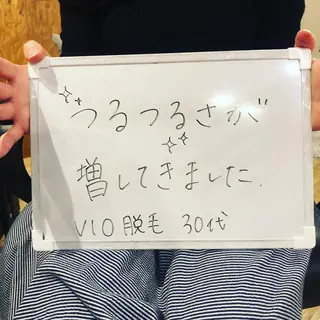 つるつるさが
増してきました.
VIO脱毛 30代